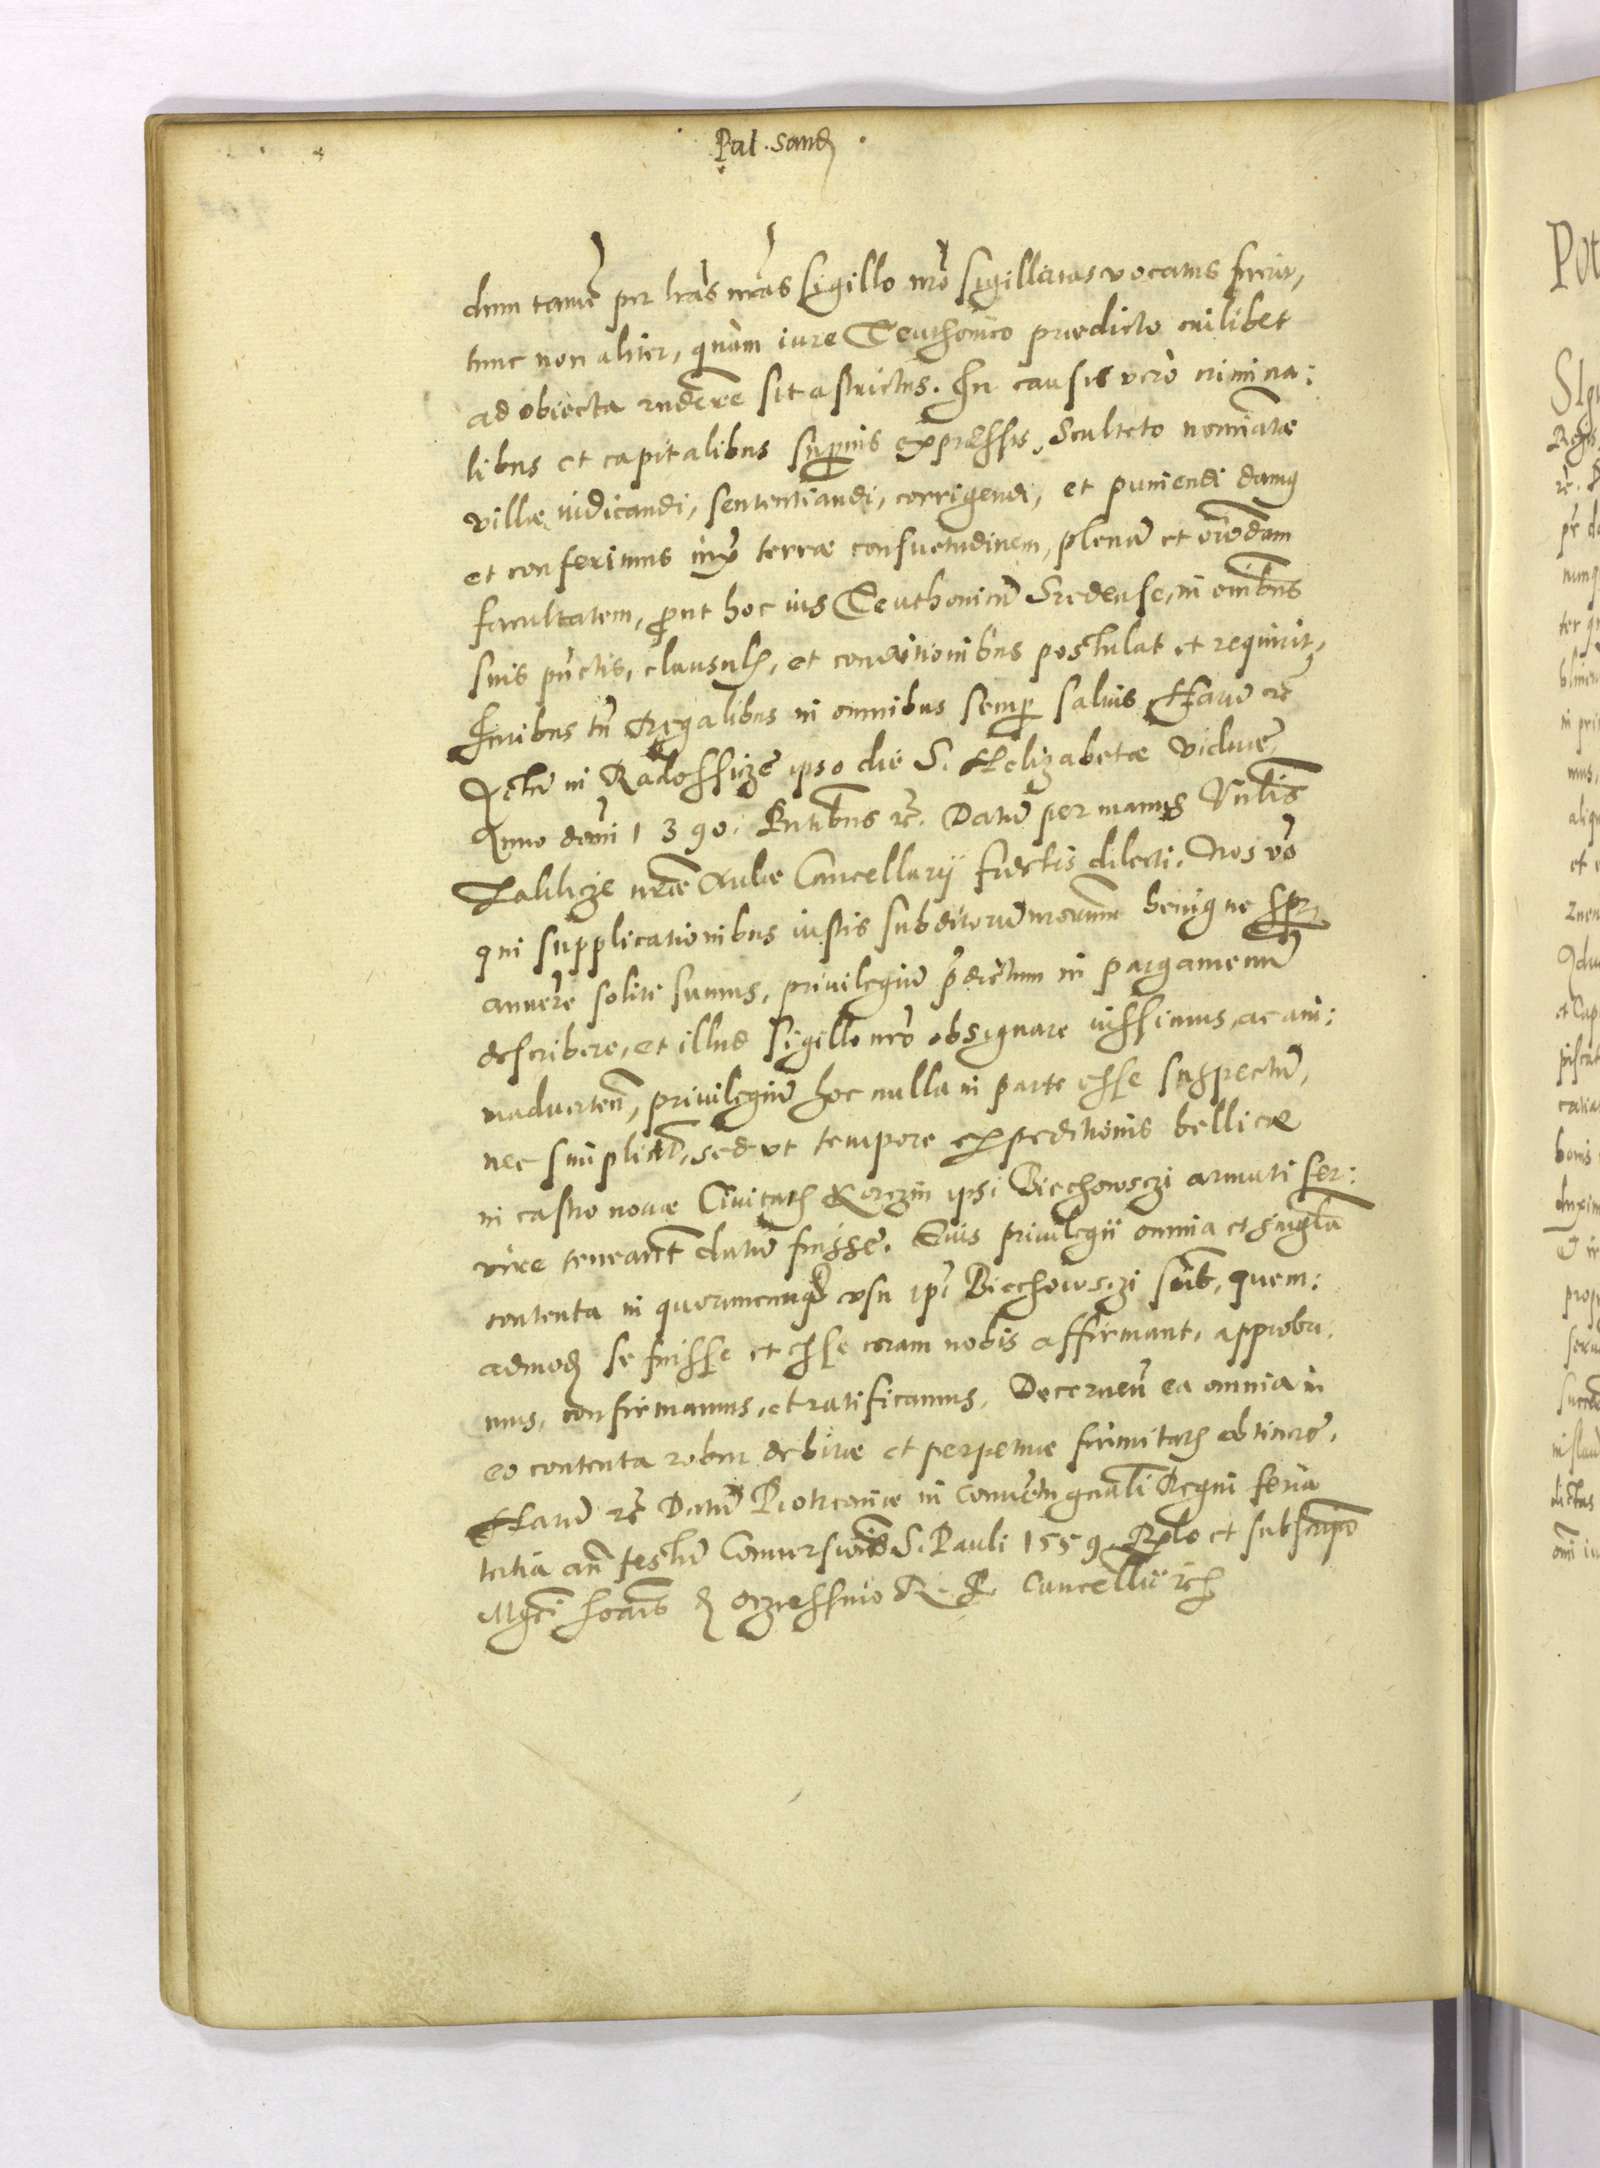 Pal. Sand.
dum tamē per lr̃as nr̃as sigillo nr̃o sigillatas vocatus fuerit,
tunc non aliter, quàm iure Teuthonico prædicto cuilibet
ad obiecta rnd̃ere sit astrictus. In causis verò crimina:
libus et capitalibus superius expressis, Sculteto nominatæ
villæ iudicandi, sententiandi, corrigendi, et puniendi damus
et conferimus terræ consuetudinem, plenā et om̃odam
facultatem, prout hoc ius Teuthonicū Sredense, in om̃ibus
suis pūctis, clausulis, et conditionibus postulat et requirit,
Iuribus tñ Regalibus in omnibus semper saluis Harū etc̃
Actū in Radosshicze ipso die S. Helizabetæ viduæ,
Anno domi 1390. rc̃. Datū per manus
nr̃æ Aulæ Cancellarij dilecti. Nos vō
qui supplicationibus iustis subditorū nr̃orum benigne
annuere solite sumus, priuilegiū p̃dictum in pargamenū
describere, et illud sigillo nr̃o obsignare iussimus, ac ani:
maduerten̄, priuilegiū hoc nulla in parte esse suspectū,
nec simplicit̃, sed vt tempore expeditionis bellicæ
in castro nouæ Ciuitatis Korczin ipsi Biechowsczi armati ser:
uire teneant̃ datū fuisse. Eius priuilegii omnia et singula
contenta in quorumcunq̃ vsu ip̃i Biechowsczi sūt, quem:
admod. se fuisse et esse coram nobis affirmant, approba:
mus, confirmamus, et ratificamus, Decernen̄ ea omnia in
eo contenta robur debitæ et perpetuæ firmitatis obtinere.
Harū rc̃ Datū Piotrcouiæ in Conuētu gen̄ali Regni feria
tertia an̄ festū Conuersionis S. Pauli 1559. Rel̃o et subscrip̃o
Mgc̃i Ioãnis d. Oczieshino R. P. Cancellarii etc.